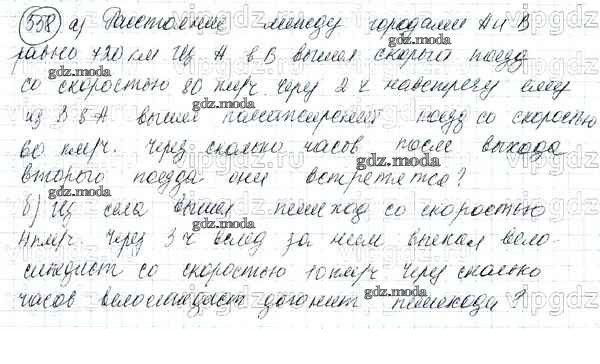 558) а) Расстояние между городами А и В
равно 720 км. Из А в В вышел скорый поезд
со скоростью 80 км/ч. Через 2 ч навстречу ему
из В в А вышел пассажирский поезд со скоростью
60 км/ч. Через сколько часов после выхода
второго поезда они встретятся?
б) Из села вышел пешеход со скоростью
4 км/ч. Через 3 ч вслед за ним выехал вело-
сипедист со скоростью 10 км/ч. Через сколько
часов велосипедист догонит пешехода?